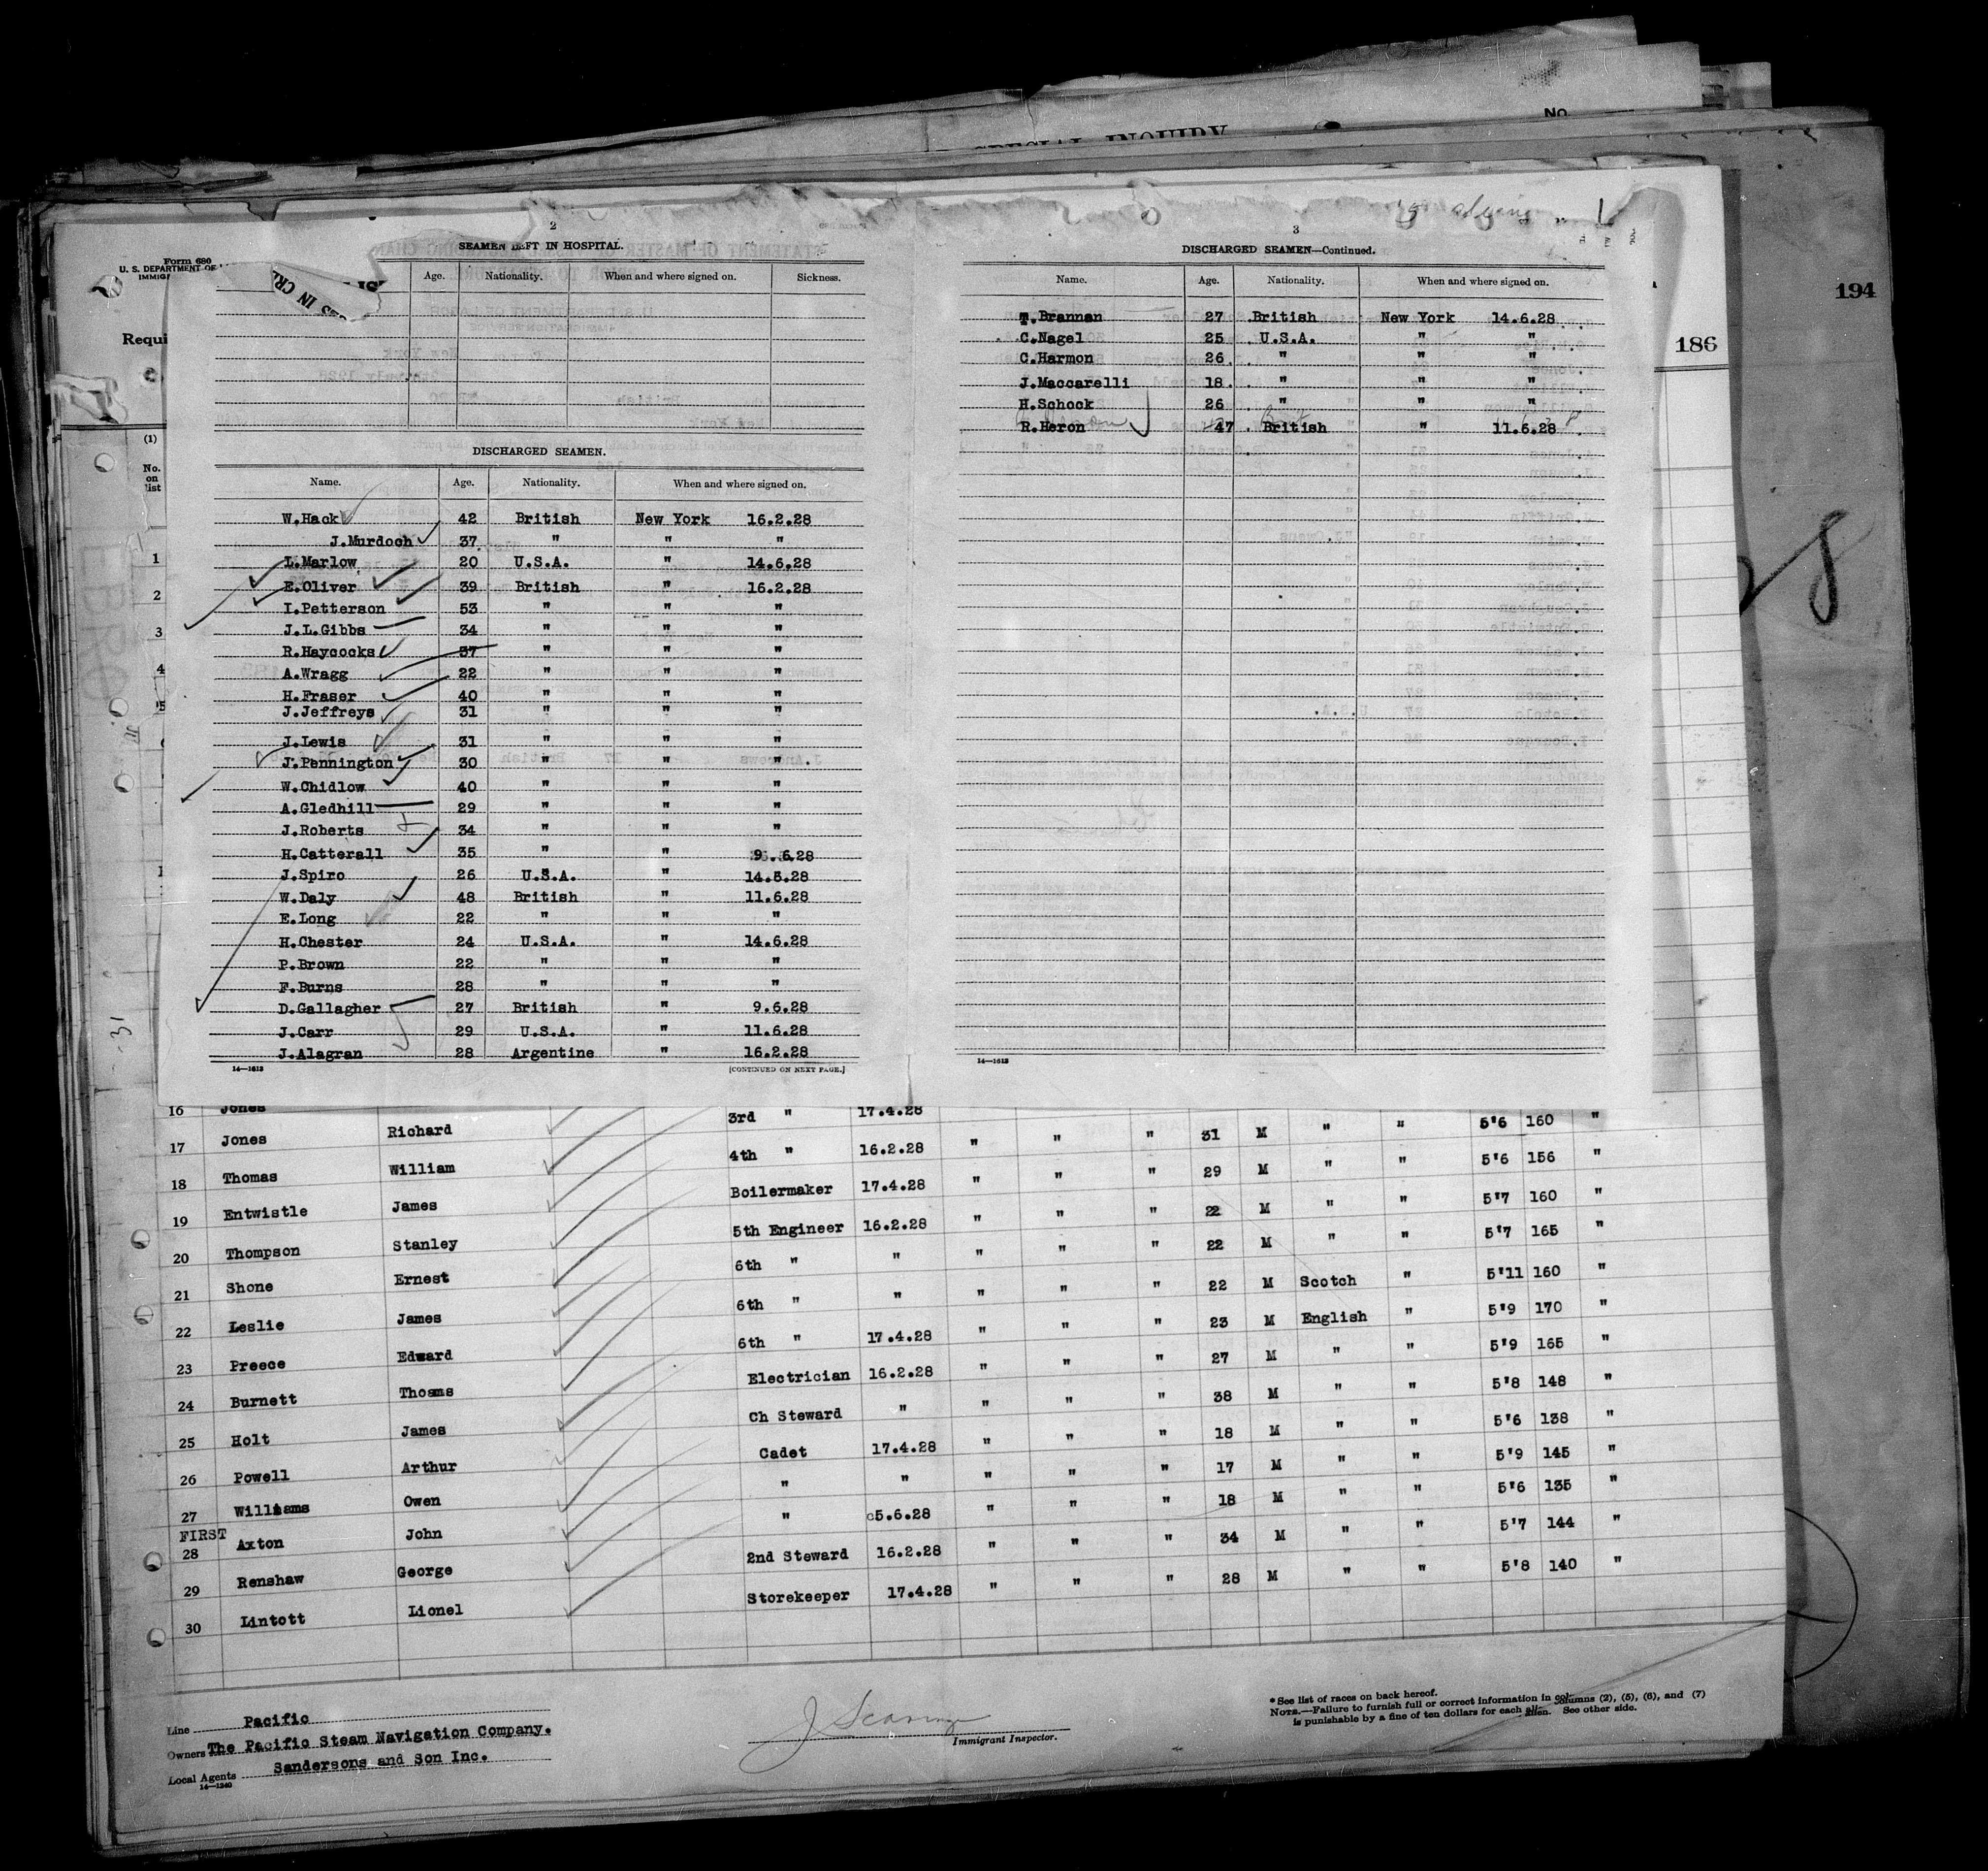 No.
SPECIAL INQUIRY
194
186
Form 680
U. S. DEPARTMENT OF
IMMIG
Requi
(1)
No. on list
2
SEAMEN LEFT IN HOSPITAL.
Age. Nationality. When and where signed on. Sickness.
DISCHARGED SEAMEN.
Name. Age. Nationality. When and where signed on.
W.Hack 42 British New York 16.2.28
J.Murdoch 37 " " "
L.Marlow 20 U.S.A. " 14.6.28
E.Oliver 39 British " 16.2.28
I.Petterson 53 " " "
J.L.Gibbs 34 " " "
R.Haycocks 37 " " "
A.Wragg 22 " " "
H.Fraser 40 " " "
J.Jeffreys 31 " " "
J.Lewis 31 " " "
J.Pennington 30 " " "
W.Chidlow 40 " " "
A.Gledhill 29 " " "
J.Roberts 34 " " "
H.Catterall 35 " " 9.6.28
J.Spiro 26 U.S.A. " 14.6.28
W.Daly 48 British " 11.6.28
E.Long 22 " " "
H.Chester 24 U.S.A. " 14.6.28
P.Brown 22 " " "
F.Burns 28 " " "
D.Gallagher 27 British " 9.6.28
J.Carr 29 U.S.A. " 11.6.28
J.Alagran 28 Argentine " 16.2.28
14—1613 [CONTINUED ON NEXT PAGE.]
3
DISCHARGED SEAMEN—Continued.
Name. Age. Nationality. When and where signed on.
T.Brannan 27 British New York 14.6.28
C.Nagel 25 U.S.A. " "
C.Harmon 26 " " "
J.Maccarelli 18 " " "
H.Schock 26 " " "
R.Heron 47 British " 11.6.28
14—1613
1
2
3
4
5
16 Jones Richard 3rd " 17.4.28 " " " 31 M " " 5'6 160 "
17 Jones William 4th " 16.2.28 " " " 29 M " " 5'6 156 "
18 Thomas James Boilermaker 17.4.28 " " " 22 M " " 5'7 160 "
19 Entwistle Stanley 5th Engineer 16.2.28 " " " 22 M " " 5'7 165 "
20 Thompson Ernest 6th " " " " " 22 M Scotch " 5'11 160 "
21 Shone James 6th " " " " 23 M English " 5'9 170 "
22 Leslie Edward 6th " 17.4.28 " " " 27 M " " 5'9 165 "
23 Preece Thoams Electrician 16.2.28 " " " 38 M " " 5'8 148 "
24 Burnett James Ch Steward " " " " 18 M " " 5'6 138 "
25 Holt Arthur Cadet 17.4.28 " " " 17 M " " 5'9 145 "
26 Powell Owen " " " " " 18 M " " 5'6 135 "
27 Williams John " 5.6.28 " " " 34 M " " 5'7 144 "
FIRST
28 Axton George 2nd Steward 16.2.28 " " " 28 M " " 5'8 140 "
29 Renshaw Lionel Storekeeper 17.4.28 "
30 Lintott
Line Pacific
Owners The Pacific Steam Navigation Company.
Local Agents Sandersons and Son Inc.
14—1240
Immigrant Inspector.
* See list of races on back hereof.
NOTE.—Failure to furnish full or correct information in columns (2), (5), (6), and (7)
is punishable by a fine of ten dollars for each alien. See other side.